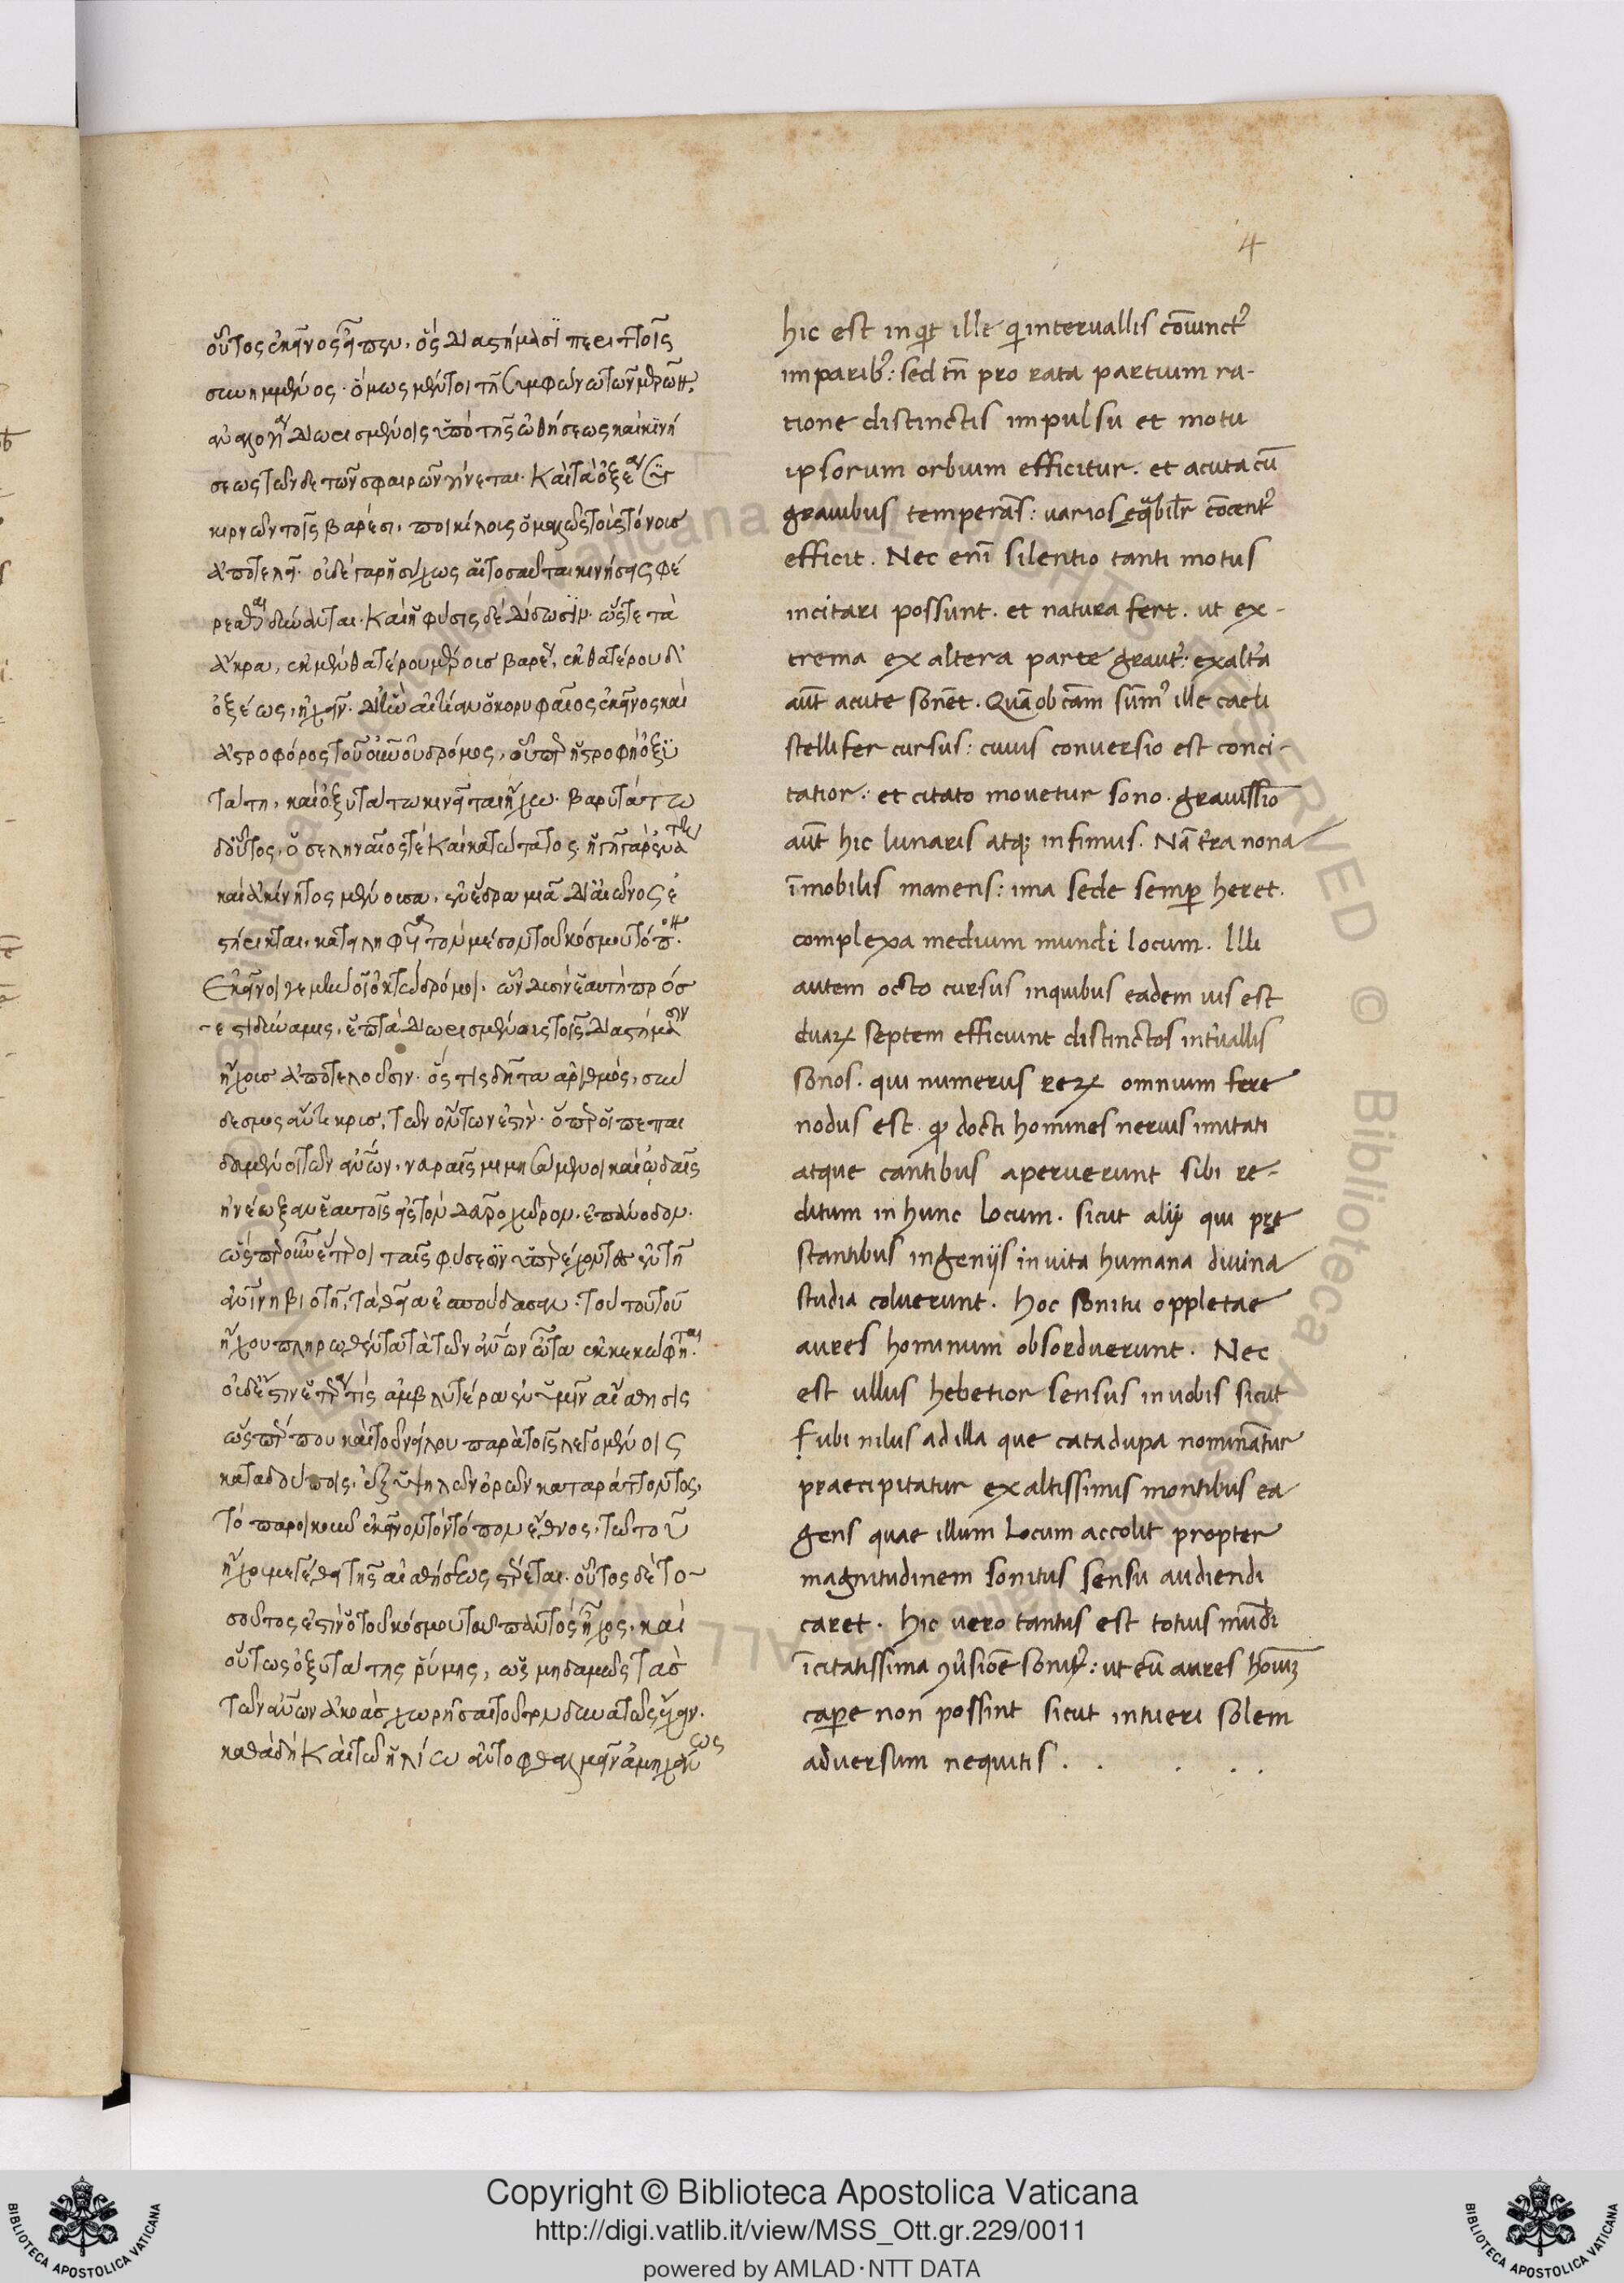 4
οὗτος ἐκεῖνος εἶπεν, ὁ διαστήμασι περιττοῖς
συνημμένος· ὅμως μέντοι τῇ συμφώνῳ τῶν μερῶν
ἀναλογίᾳ διωρισμένοις ὑπὸ τῆς ὠθήσεως καὶ κινή
σεως τῶνδε τῶν σφαιρῶν γίνεται. Καὶ τὰ ὀξέα
κιρνῶν τοῖς βαρέσι, ποικίλοις ὁμαλῶς τοῖς τόνοις
ἀποτελεῖ. οὐδὲ γὰρ ἡσύχως αἱ τοσαῦται κινήσεις φέ
ρεσθαι δύνανται. Καὶ ἡ φύσις δὲ δίδωσιν. ὥστε τὰ
ἄκρα, ἐκ μὲν θατέρου μέρους βαρέ, ἐκ θατέρου δ'
ὀξέως, ἠχεῖν. δι' ἣν αἰτίαν ὁ κορυφαῖος ἐκεῖνος καὶ
ἀστροφόρος τοῦ οὐνοῦ δρόμος, οὗπερ ἡ στροφὴ ὀξυ
τάτη, καὶ ὀξυτάτῳ κινεῖται ἤχῳ. βαρυτάτῳ
δ οὗτος, ὁ σεληναῖός τε καὶ κατώτατος. ἡ γῆ γὰρ ἐννάτη
καὶ ἀκίνητος μένουσα, ἐν ἕδρᾳ μιᾷ δι' αἰῶνος ἐ
στήρικται, κατειληφυῖα τὸν μέσον τοῦ κόσμου τόπον.
Ἐκεῖνοι γε μὴν οἱ ὀκτὼ δρόμοι, ὧν δυσὶν ἡ αὐτὴ πρόσ
εστι δύναμις, ἑπτὰ διωρισμένους τοῖς διαστήμασιν
ἤχους ἀποτελοῦσιν. ὅς τις δῆτα ἀριθμός, συν
δεσμος ἄντικρυς, τῶν ὄντων ἐστίν. ὅπερ οἱ πεπαι
δευμένοι τῶν ἀνων, νευραῖς μιμησάμενοι καὶ ᾠδαῖς
ἠνέωξαν ἑαυτοῖς εἰς τὸν δεῦρο χῶρον, ἐπάνοδον.
ὥσπερ οὖν ἕτεροι ταῖς φύσεσιν ὑπερέχοντες ἐν τῇ
ἀνίνῃ βιοτῇ, τὰ θεῖα ἐσπούδασαν. Τούτου τοῦ
ἤχου πληρωθέντα τὰ τῶν ἀνων ὦτα ἐκκεκώφηται.
οὐδ' ἔστιν ἑτέρα τις ἀμβλυτέρα ἐν ὑμῖν αἴσθησις
ὥσπερ που καὶ τοῦ νείλου παρὰ τοῖς λεγομένοις
καταδούποις, ἐξ ὑψηλῶν ὀρῶν καταράττοντος,
τὸ παροικοῦν ἐκεῖνον τὸν τόπον ἔθνος, τῷ τοῦ
ἤχου μεγέθει τῆς αἰσθήσεως στέρεται. οὗτος δὲ το-
σοῦτος ἐστὶν ὁ τοῦ κόσμου τοῦ παντὸς ἦχος, καὶ
οὕτως ὀξυτάτης ῥύμης, ὡς μηδαμῶς τὰς
τῶν ἀνων ἀκοὰς χωρῆσαι τοῦτον δυνατῶς ἔχειν.
καθὰ δὴ καὶ τῷ ἡλίῳ ἀντοφθαλμεῖν ἀμηχάνως
hic est inqt ille q intervallis coiunct9
imparib9: sed tn pro rata partium ra-
tione distinctis impulsu et motu
ipsorum orbium efficitur. et acuta cū
gravibus temperās: varios eqbilr cōcent9
efficit. Nec enī silentio tanti motus
incitari possunt. et natura fert. ut ex-
trema ex altera parte gravit: ex altā
aut acute sonēt. Quā ob cām sūm9 ille caeli
stellifer cursus: cuius conversio est conci-
tatior: et citato movetur sono. gravissīo
aut hic lunaris atq; infimus. Nā tra nona
īmobilis manens: ima sede semp heret.
complexa medium mundi locum. Illi
autem octo cursus inquibus eadem vis est
duaꝝ septem efficiunt distinctos intvallis
sonos. qui numerus reꝝ omnium fere
nodus est. qd docti homines nervis imitati
atque cantibus aperuerunt sibi re-
ditum in hunc locum. sicut alij qui prę
stantibus ingenijs in vita humana divina
studia coluerunt. Hoc sonitu oppletae
aures hominum obsorduerunt. Nec
est ullus hebetior sensus in vobis sicut
ubi nilus ad illa que catadupa nominātur
praecipitatur ex altissimis montibus ea
gens quae illum locum accolit propter
magnitudinem sonitus sensu audiendi
caret. Hic vero tantus est totius mūdi
īcitatissima ꝯvsiōe sonit9: ut eū aures hoīuʒ
capere non possint sicut intueri solem
adversum nequitis . . . . .
Copyright © Biblioteca Apostolica Vaticana
http://digi.vatlib.it/view/MSS_Ott.gr.229/0011
powered by AMLAD·NTT DATA
BIBLIOTECA APOSTOLICA VATICANA
BIBLIOTECA APOSTOLICA VATICANA